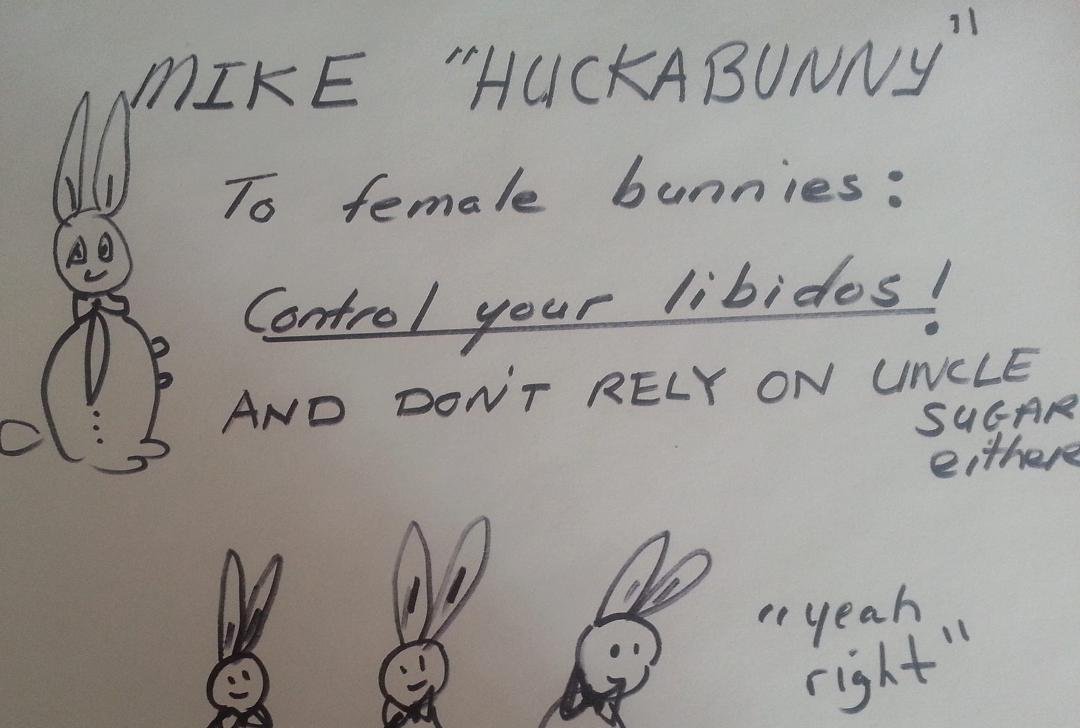 MIKE "HUCKABUNNY"
To female bunnies:
Control your libidos!
AND DON'T RELY ON UNCLE
SUGAR
either
"yeah
right"